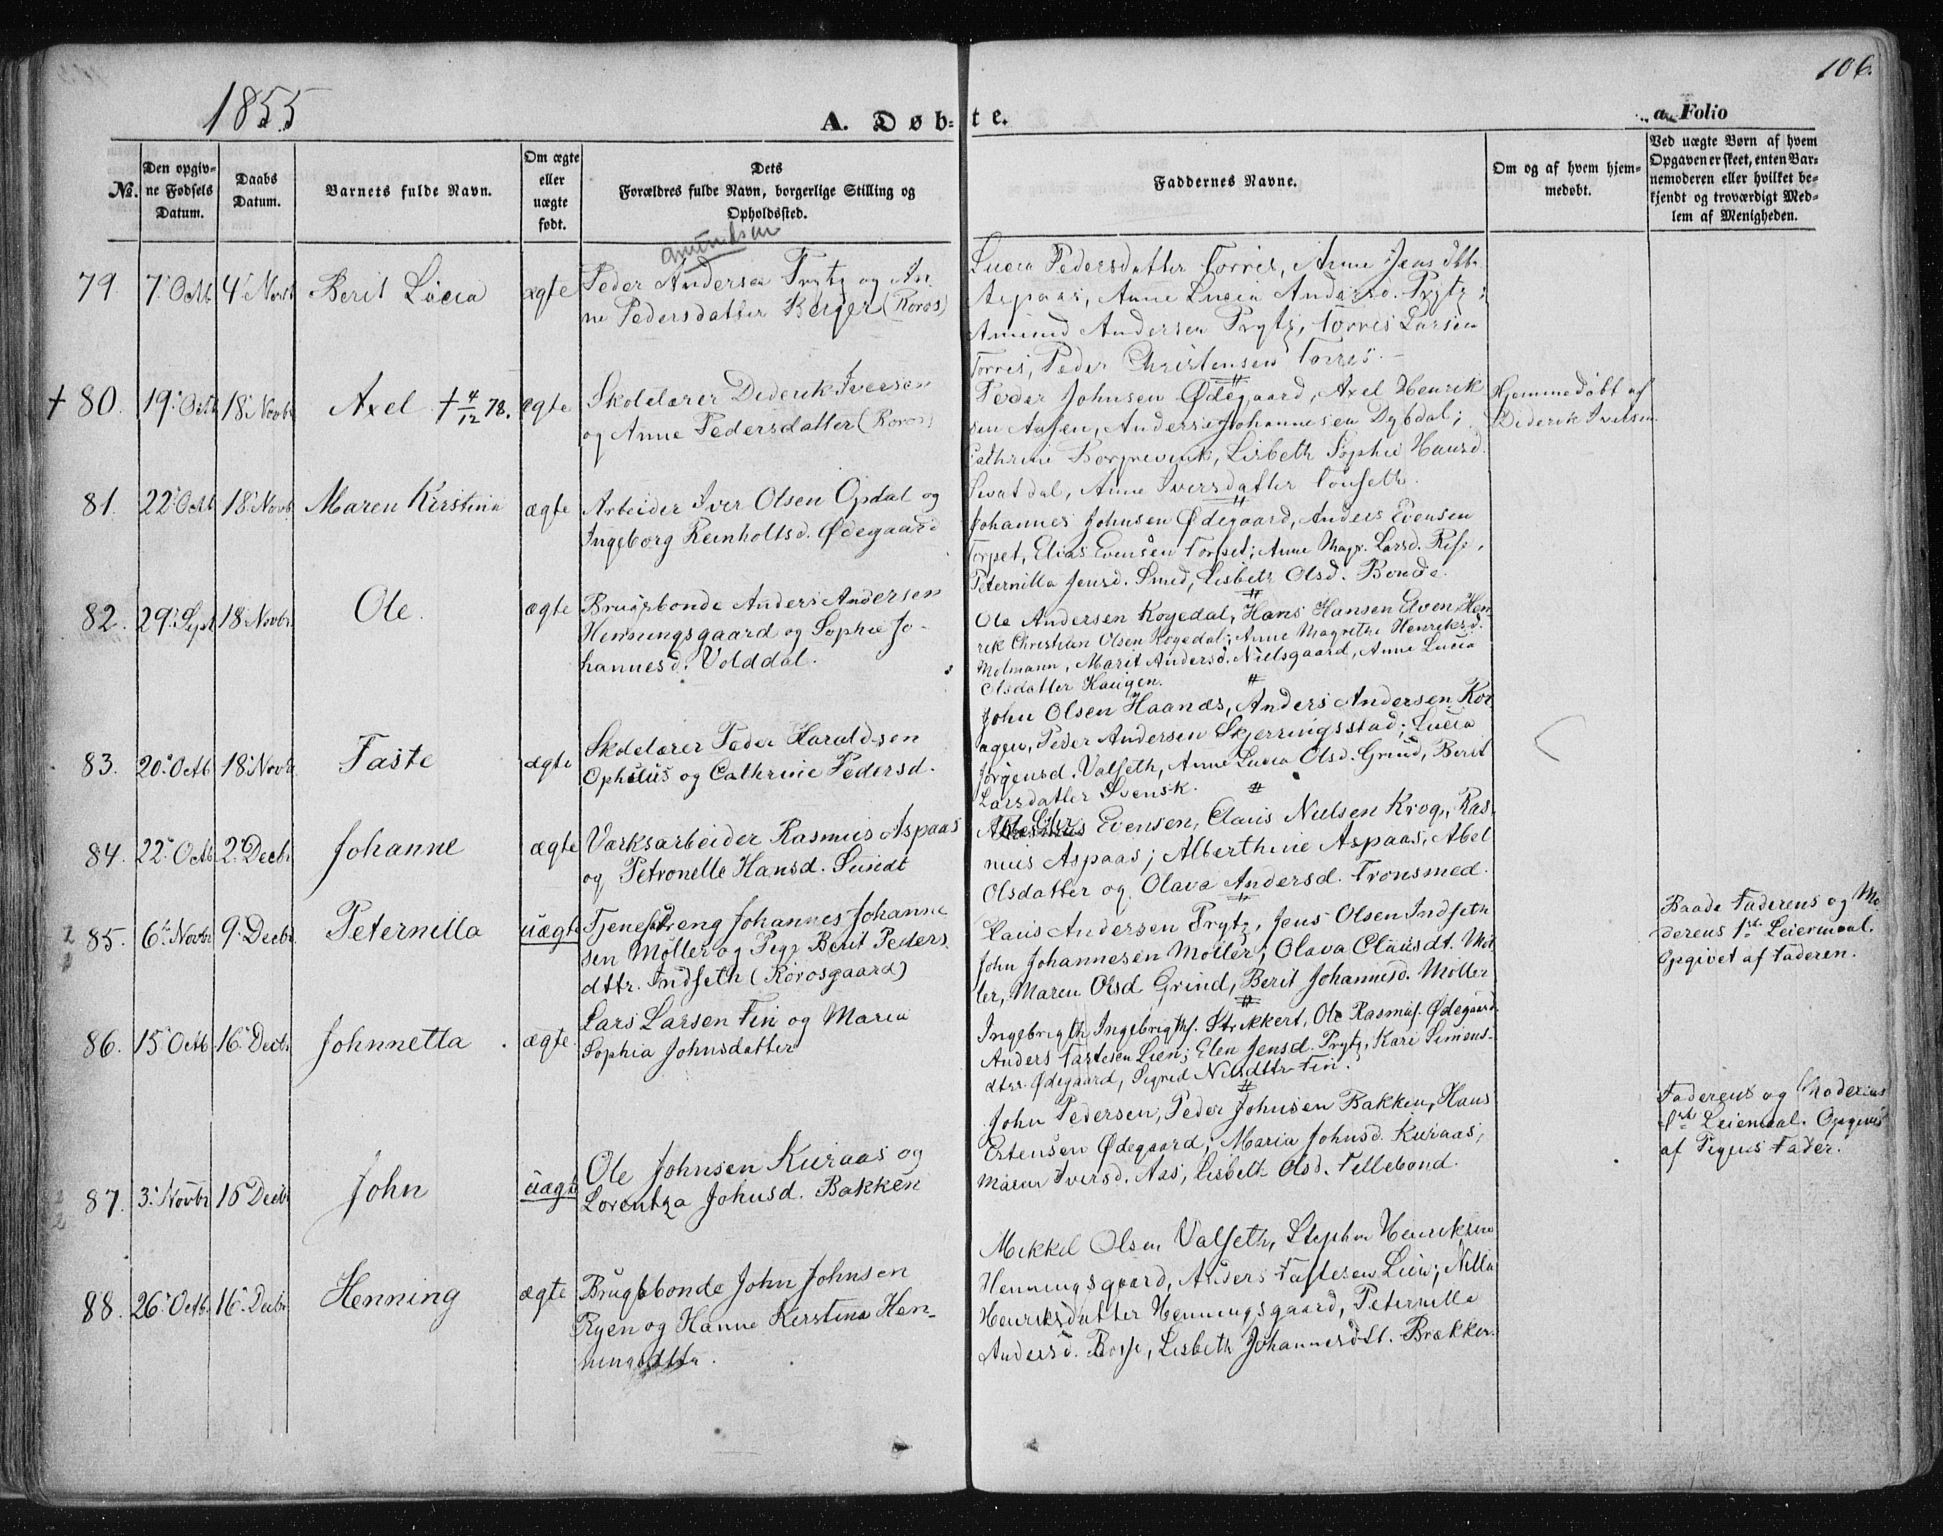 106.
1855
A. Døbte.
a. Folio
No.
Den opgivne Fødsels Datum.
Daabs Datum.
Barnets fulde Navn.
Om ægte eller uægte født.
Dets Forældres fulde Navn, borgerlige Stilling og Opholdssted.
Faddernes Navne.
Om og af hvem hjemmedøbt.
Ved uægte Børn af hvem Opgaven er skeet, enten Barnemoderen eller hvilket bekjendt og troværdigt Medlem af Menigheden.
79. 7. Octb. 4. Novb Berit Lucia ægte
Amundsen
Peder Andersen Prytz og An-
ne Pedersdatter Berger (Røros)
Lucia Pedersdatter Torres, Anne Jens dtt.
Aspaas, Anne Lucia Andersd. Prytz;
Amund Andersen Prytz, Torres Larsen
Torres, Peder Christensen Torres.
† 80. 19. Octb 18. Novbr Axel † 4/12 78. ægte
Skolelærer Dederik Iversen
og Anne Pedersdatter (Røros)
Peder Johnsen Ødegaard, Axel Henrik
sen Aasen, Anders Johannesen Dybdal;
Cathrine Borgrevink, Lisbeth Sophie Hansd.
dal, Anne Iversdatter Tonseth.
Hjemmedøbt af
Diderik Iversen
81. 22. Octb 18. Novb. Maren Kirstina ægte
Arbeider Iver Olsen Opdal og
Ingeborg Reinholtsd. Ødegaard
Johannes Johnsen Ødegaard, Anders Evensen
Torpet, Elias Evensen Torpet; Anne Magr. Larsd. Risi,
Peternilla Jensd. Smed, Lisbeth Olsd. Bonde.
82. 29. Sept 18. Novbr Ole. ægte
Brugsbonde Anders Andersen
Henningsgaard og Sophie Jo-
hannesd. Volddal.
Ole Andersen Kogedal, Hans Hansen Elven, Hen-
rik Christian Olsen Kogedal; Anne Magrethe Henriksd.
Molmann, Marit Andersd. Nielsgaard, Anne Lucia
Olsdatter Haugen.
83. 20. Octb 18. Novbr Faste ægte
Skolelærer Peder Haraldsen
Ophuus og Cathrine Pedersd.
John Olsen Haanæs, Anders Andersen Kor
agen, Peder Andersen Skjerringsstad; Lucia
Jørgensd. Valseth, Anne Lucia Olsd. Grind, Berit
Larsdatter Svensk.
84. 22. Octb 2. Decbr Johanne ægte
Værksarbeider Rasmus Aspaas
og Petronelle Hansd. Sundt
Evensen, Claus Nielsen Krog, Ras-
mus Aspaas; Alberthine Aspaas, Abel
Olsdatter og Olava Andersd. Tronsmed.
85. 6. Novbr 9. Decbr Peternilla uægte
Tjenestdreng Johannes Johanne
sen Møller og Pige Berit Peders
dttr. Indseth (Rørosgaard)
Claus Andersen Prytz, Jens Olsen Indseth
John Johannesen Møller; Olava Clausdt. Møl-
ler, Maren Olsd Grind, Berit Johannesd. Møller
Baade Faderens og Mo-
derens 1ste Leiermaal.
Opgivet af Faderen.
86. 15. Octb 16. Decbr Johnnetta ægte.
Lars Larsen Fin og Maria
Sophia Johnsdatter
Ingebrigth Ingebrigths. Strikkert, Ole Rasmus. Ødegaard
Anders Fastesen Lien; Elen Jensd. Prytz, Kari Simons-
dttr. Ødegaard, Sigred Nilsdttr Fin.
87. 3. Novbr 16 Decbr John uægte
Ole Johnsen Kuraas og
Lorentza Johnsd. Bakken
John Pedersen, Peder Johnsen Bakken, Hans
Estensen Ødegaard; Maria Johnsd. Kuraas;
Maren Iversd. Aas, Lisbet Olsd. Fellebond.
Faderens og Moderens
1ste Leiermaal. Opgivet
af Pigens Fader.
88. 26. Octb. 16. Decbr Henning ægte
Brugsbonde John Johnsen
Ryen og Hanne Kirstina Hen-
ningsdttr.
Mekkel Olsen Valseth, Stephen Henriksen
Henningsgaard, Anders Fastesen Lien; Nilla
Henriksdatter Henningsgaard, Peternille
Andersd. Bosse, Lisbeth Johannesdt. Brækken.